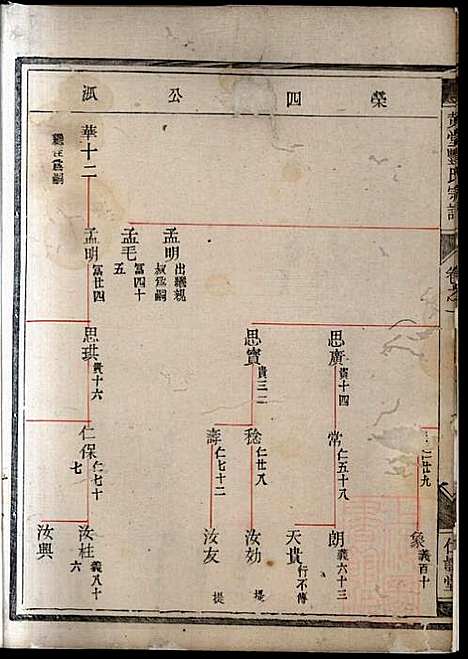 榮四公派
氏宗譜
卷之一
仁廿九
象 義百十
思廣 貴十四
常 仁五十八
朗 義六十三
天貴 行不傳
思寶 貴三二
稔 仁廿八
汝効 堤
壽 仁七十二
汝友 堤
孟明 出繼親叔為嗣
孟毛 富四十五
華十二
孟明 富廿四
思珙 貴十六
仁保 仁七十七
汝桂 義八十六
汝興